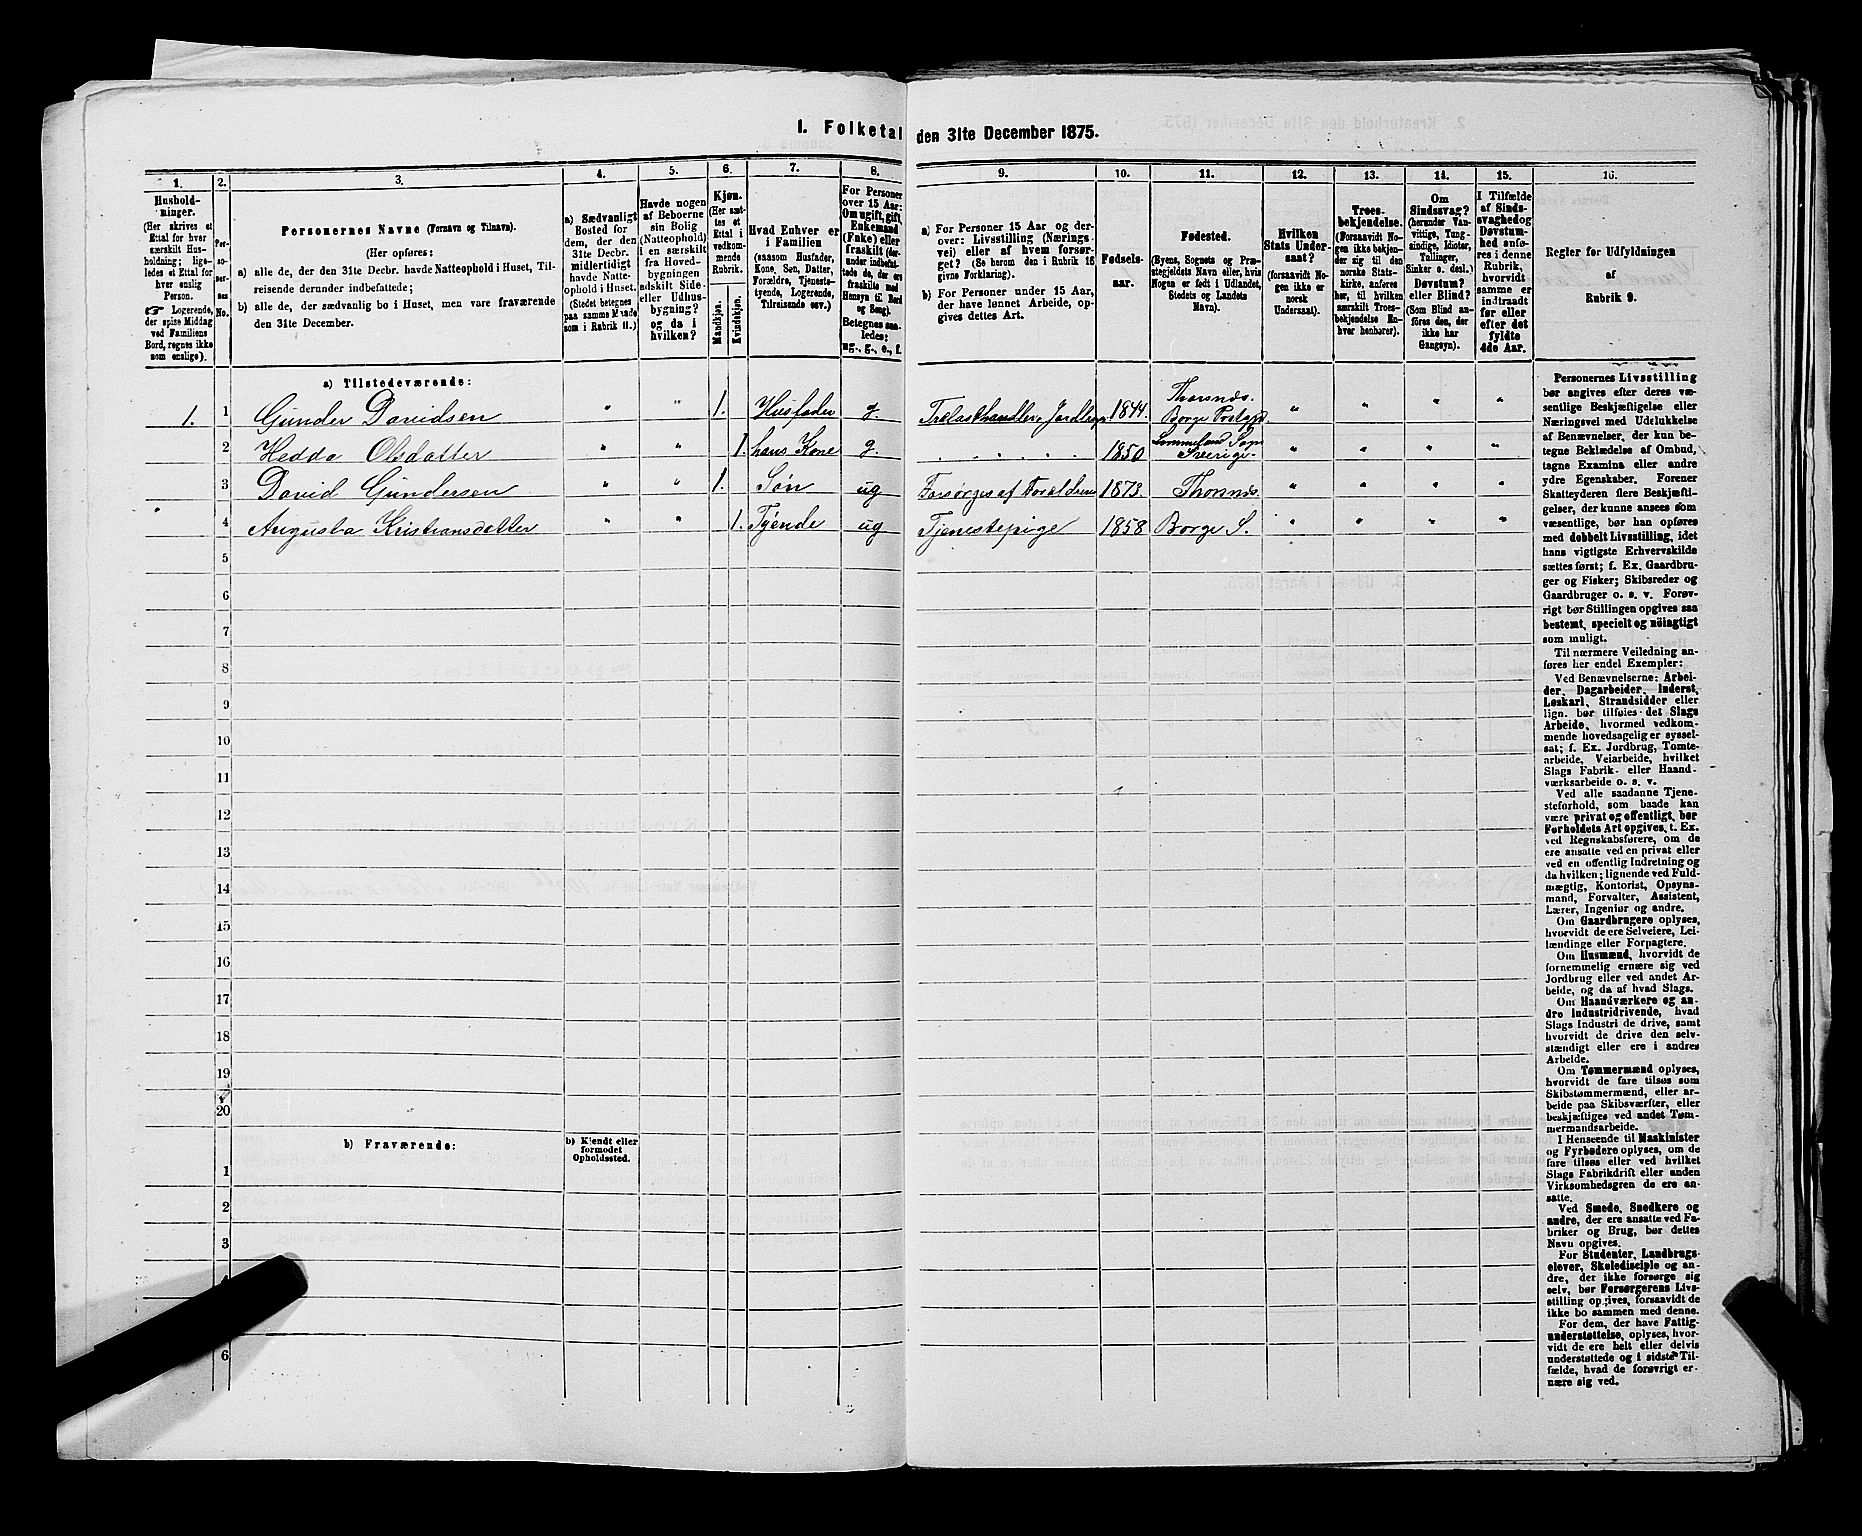 I. Folketal den 31te December 1875.
1. 2. 3. 4. 5. 6. 7. 8. 9. 10. 11. 12. 13. 14. 15. 16.
Hushold-
ninger.
(Her skrives et
Ettal for hver
særskilt Hus-
holdning; lige-
ledes et Ettal for
hver enslig
Person.
☞ Logerende,
der spise Middag
ved Familiens
Bord, regnes ikke
som enslige).
Per-
so-
ner-
nes
No.
Personernes Navne (Fornavn og Tilnavn).
(Her opføres:
a) alle de, der den 31te Decbr. havde Natteophold i Huset, Til-
reisende derunder indbefattede;
b) alle de, der sædvanlig bo i Huset, men vare fraværende
den 31te December.
a) Sædvanligt
Bosted for
dem, der den
31te Decbr.
midlertidigt
havde Natte-
ophold i Huset.
(Stedet betegnes
paa samme Maade
som i Rubrik 11.)
Havde nogen
af Beboerne
sin Bolig
(Natteophold)
i en særskilt
fra Hoved-
bygningen
adskilt Side-
eller Udhus-
bygning?
og da i
hvilken?
Kjøn.
(Her sæt-
tes et
Ettal i
vedkom-
mende
Rubrik.
Mandkjøn.
Kvindekjøn.
Hvad Enhver er
i Familien
(saasom Husfader,
Kone, Søn, Datter,
Forældre, Tjeneste-
tyende, Logerende,
Tilreisende osv.)
For Personer
over 15 Aar:
Om ugift, gift,
Enkemand
(Enke) eller
fraskilt (der-
under indbefat-
tede de, der ere
fraskilte med
Hensyn til Bord
og Seng).
Betegnes saa-
ledes:
ug., g., e., f.
a) For Personer 15 Aar og der-
over: Livsstilling (Nærings-
vei) eller af hvem forsør-
get? (Se herom den i Rubrik 16
givne Forklaring).
b) For Personer under 15 Aar,
der have lønnet Arbeide, op-
gives dettes Art.
Fødsels-
aar.
Fødested.
(Byens, Sognets og Præ-
stegjeldets Navn eller, hvis
Nogen er født i Udlandet,
Stedets og Landets
Navn).
Hvilken
Stats Under-
saat?
(forsaavidt No-
gen ikke er
norsk
Undersaat).
Troes-
bekjendelse.
(Forsaavidt No-
gen ikke bekjen-
der sig til den
norske Stats-
kirke, anføres
her, til hvilken
særskilt Troes-
bekjendelse En-
hver henhører).
Om
Sindssvag?
(herunder Van-
vittige, Tung-
sindige, Idioter,
Tullinger,
Sinker o. desl.)
Døvstum?
eller Blind?
(Som Blind an-
føres den, der
ikke har
Gangsyn).
I Tilfælde
af Sinds-
svaghed og
Døvstum-
hed anfø-
res i denne
Rubrik,
hvorvidt
samme er
indtraadt
før eller
efter det
fyldte
4de Aar.
Regler for Udfyldningen
af
Rubrik 9.
a) Tilstedeværende:
1. 1 Gunder Davidsen " " 1. Husfader g. Trælasthandler, Jordbrug 1844. Thorsnæs. Borge Prstgjd
2 Hedda Olsdatter " " 1. hans Kone g. 1850 Sverige
3 David Gundersen " " 1. Søn ug Forsørges af Forældrene 1873. Thorsnæs.
4 Augusta Kristiansdatter " " 1. Tyende ug Tjenestepige 1858 Borge S.
5
6
7
8
9
10
11
12
13
14
15
16
17
18
19
20
b) Fraværende:
b) Kjendt eller
formodet
Opholdssted.
1
2
3
4
6
Personernes Livsstilling
bør angives efter deres væ-
sentlige Beskjæftigelse eller
Næringsvei med Udelukkelse
af Benævnelser, der kun be-
tegne Beklædelse af Ombud,
tagne Examina eller andre
ydre Egenskaber. Forener
Skatteyderen flere Beskjæfti-
gelser, der kunne ansees som
væsentlige, bør han opføres
med dobbelt Livsstilling, idet
hans vigtigste Erhvervskilde
sættes først; f. Ex. Gaardbru-
ger og Fisker; Skibsreder og
Gaardbruger o. s. v. Forøv-
rigt bør Stillingen opgives saa
bestemt, specielt og nöiagtigt
som muligt.
Til nærmere Veiledning an-
føres her endel Exempler:
Ved Benævnelserne: Arbei-
der, Dagarbeider, Inderst,
Løskarl, Strandsidder eller
lign. bør tilføies det Slags
Arbeide, hvormed vedkom-
mende hovedsagelig er syssel-
sat; f. Ex. Jordbrug, Tomte-
arbeide, Veiarbeide, hvilket
Slags Fabrik- eller Haand-
værksarbeide o. s. v.
Ved alle saadanne Tjene-
steforhold, som baade kan
være privat og offentligt, bør
Forholdets Art opgives, t. Ex.
ved Regnskabsførere, om de
ere ansatte ved en privat eller
ved en offentlig Indretning og
da hvilken; lignende ved Fuld-
mægtig, Kontorist, Opsyns-
mand, Forvalter, Assistent,
Lærer, Ingeniør og andre.
Om Gaardbrugere oplyses,
hvorvidt de ere Selveiere, Lei-
lændinge eller Forpagtere.
Om Husmænd, hvorvidt de
fornemmelig ernære sig ved
Jordbrug eller ved andet Ar-
beide, og da af hvad Slags.
Om Haandværkere og an-
dre Industridrivende, hvad
Slags Industri de drive, samt
hvorvidt de drive den selv-
stændigt eller ere i andres
Arbeide.
Om Tømmermænd oplyses,
hvorvidt de fare tilsøs som
Skibstømmermænd, eller ar-
beide paa Skibsværfter, eller
beskjæftiges ved andet Tøm-
mermandsarbeide.
I Henseende til Maskinister
og Fyrbødere oplyses, om de
fare tilsøs eller ved hvilket
Slags Fabrikdrift eller anden
Virksomhedsgren de ere an-
satte.
Ved Smede, Snedkere og
andre, der ere ansatte ved Fa-
briker og Brug, bør dettes
Navn opgives.
For Studenter, Landbrugs-
elever, Skoledisciple og an-
dre, der ikke forsørge sig
selv, bør Forsørgerens Livs-
stilling opgives, forsaavidt de
ikke bo sammen med denne.
For dem, der have Fattig-
understøttelse, oplyses, hvor-
vidt de ere helt eller delvis
understøttede og i sidste Til-
fælde, hvad de forøvrigt er-
nære sig ved.